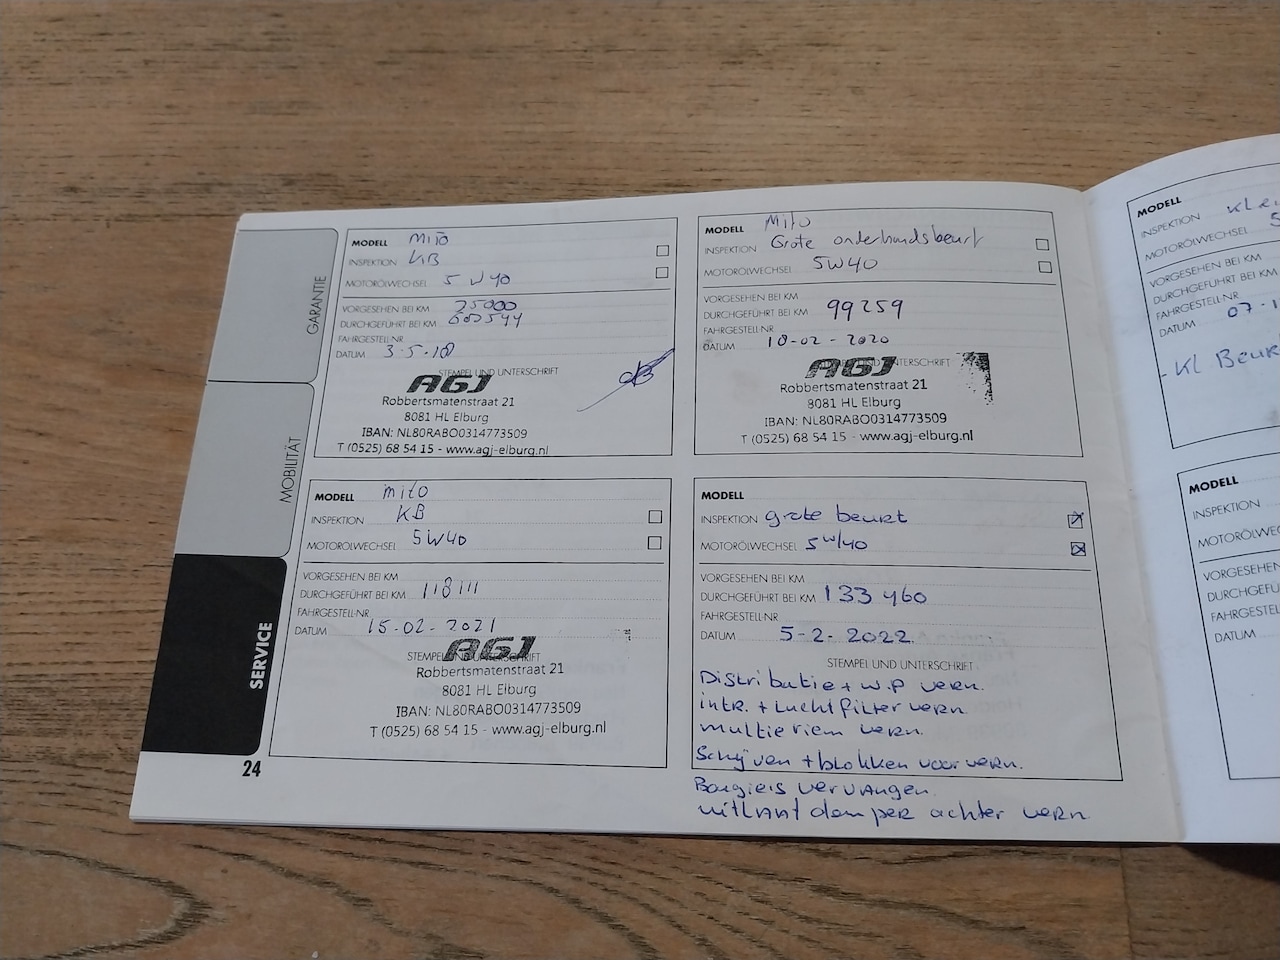 GARANTIE
MOBILITÄT
SERVICE
24
MODELL Mito
INSPEKTION KB
MOTORÖLWECHSEL 5W40
VORGESEHEN BEI KM 75000
DURCHGEFÜHRT BEI KM
FAHRGESTELL-NR
DATUM 3-5-18
STEMPEL UND UNTERSCHRIFT
AGJ
Robbertsmatenstraat 21
8081 HL Elburg
IBAN: NL80RABO0314773509
T (0525) 68 54 15 - www.agj-elburg.nl
MODELL Mito
INSPEKTION Grote onderhoudsbeurt
MOTORÖLWECHSEL 5W40
VORGESEHEN BEI KM
DURCHGEFÜHRT BEI KM 99259
FAHRGESTELL-NR
DATUM 18-02-2020
STEMPEL UND UNTERSCHRIFT
AGJ
Robbertsmatenstraat 21
8081 HL Elburg
IBAN: NL80RABO0314773509
T (0525) 68 54 15 - www.agj-elburg.nl
MODELL mito
INSPEKTION KB
MOTORÖLWECHSEL 5W40
VORGESEHEN BEI KM
DURCHGEFÜHRT BEI KM 118111
FAHRGESTELL-NR
DATUM 15-02-2021
STEMPEL UND UNTERSCHRIFT
AGJ
Robbertsmatenstraat 21
8081 HL Elburg
IBAN: NL80RABO0314773509
T (0525) 68 54 15 - www.agj-elburg.nl
MODELL
INSPEKTION grote beurt
MOTORÖLWECHSEL 5W/40
VORGESEHEN BEI KM
DURCHGEFÜHRT BEI KM 133460
FAHRGESTELL-NR
DATUM 5-2-2022
STEMPEL UND UNTERSCHRIFT
Distributie + W.P vern.
intr. + Luchtfilter vern.
multie riem vern.
Schijven + blokken voor vern.
Bougieis vervangen.
uitlaat demper achter vern.
MODELL
INSPEKTION
MOTORÖLWECHSEL 5
VORGESEHEN BEI KM
DURCHGEFÜHRT BEI KM
FAHRGESTELL-NR
DATUM 07-1
- Kl Beur
MODELL
INSPEKTION
MOTORÖLWECHSEL
VORGESEHEN
DURCHGEFÜ
FAHRGESTEL
DATUM